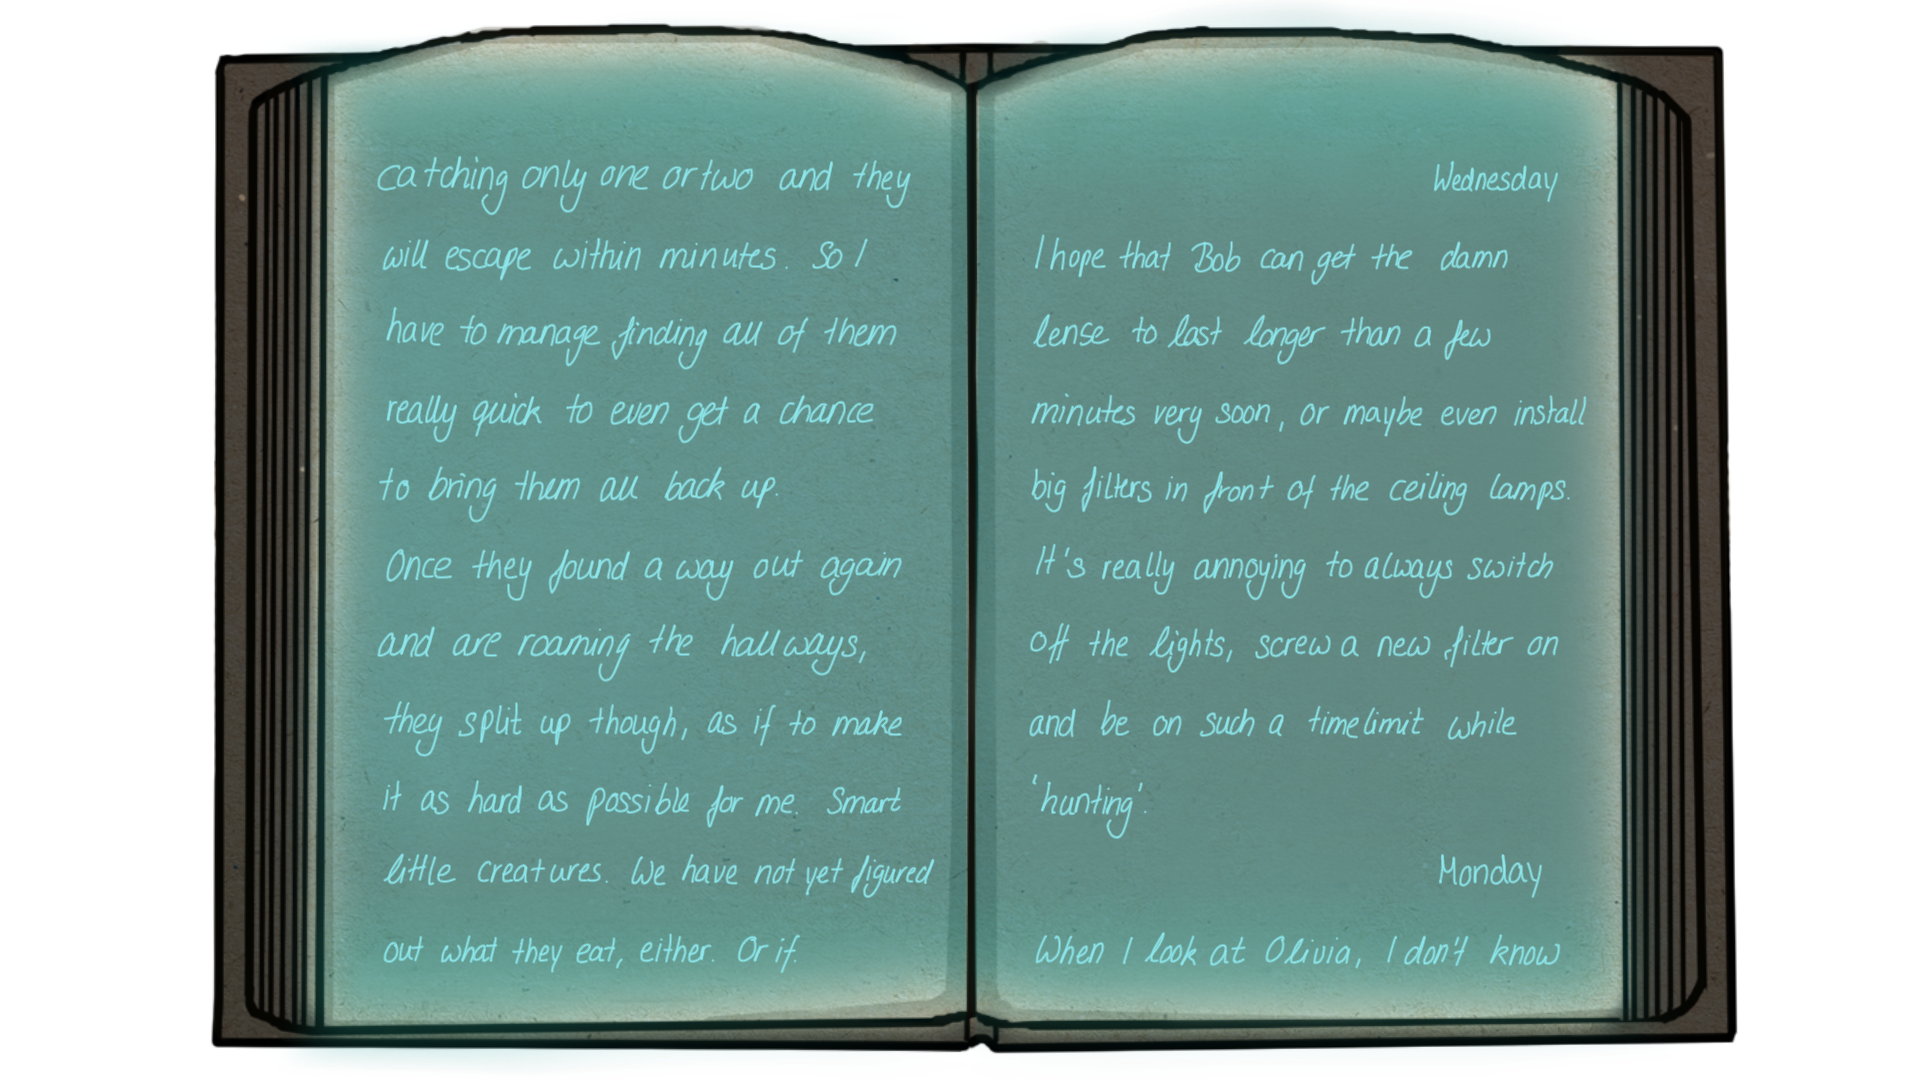 catching only one or two and they
will escape within minutes. So I
have to manage finding all of them
really quick to even get a chance
to bring them all back up.
Once they found a way out again
and are roaming the hallways,
they split up though, as if to make
it as hard as possible for me. Smart
little creatures. We have not yet figured
out what they eat, either. Or if.
Wednesday
I hope that Bob can get the damn
lense to last longer than a few
minutes very soon, or maybe even install
big filters in front of the ceiling lamps.
It's really annoying to always switch
off the lights, screw a new filter on
and be on such a timelimit while
'hunting'.
Monday
When I look at Olivia, I don't know